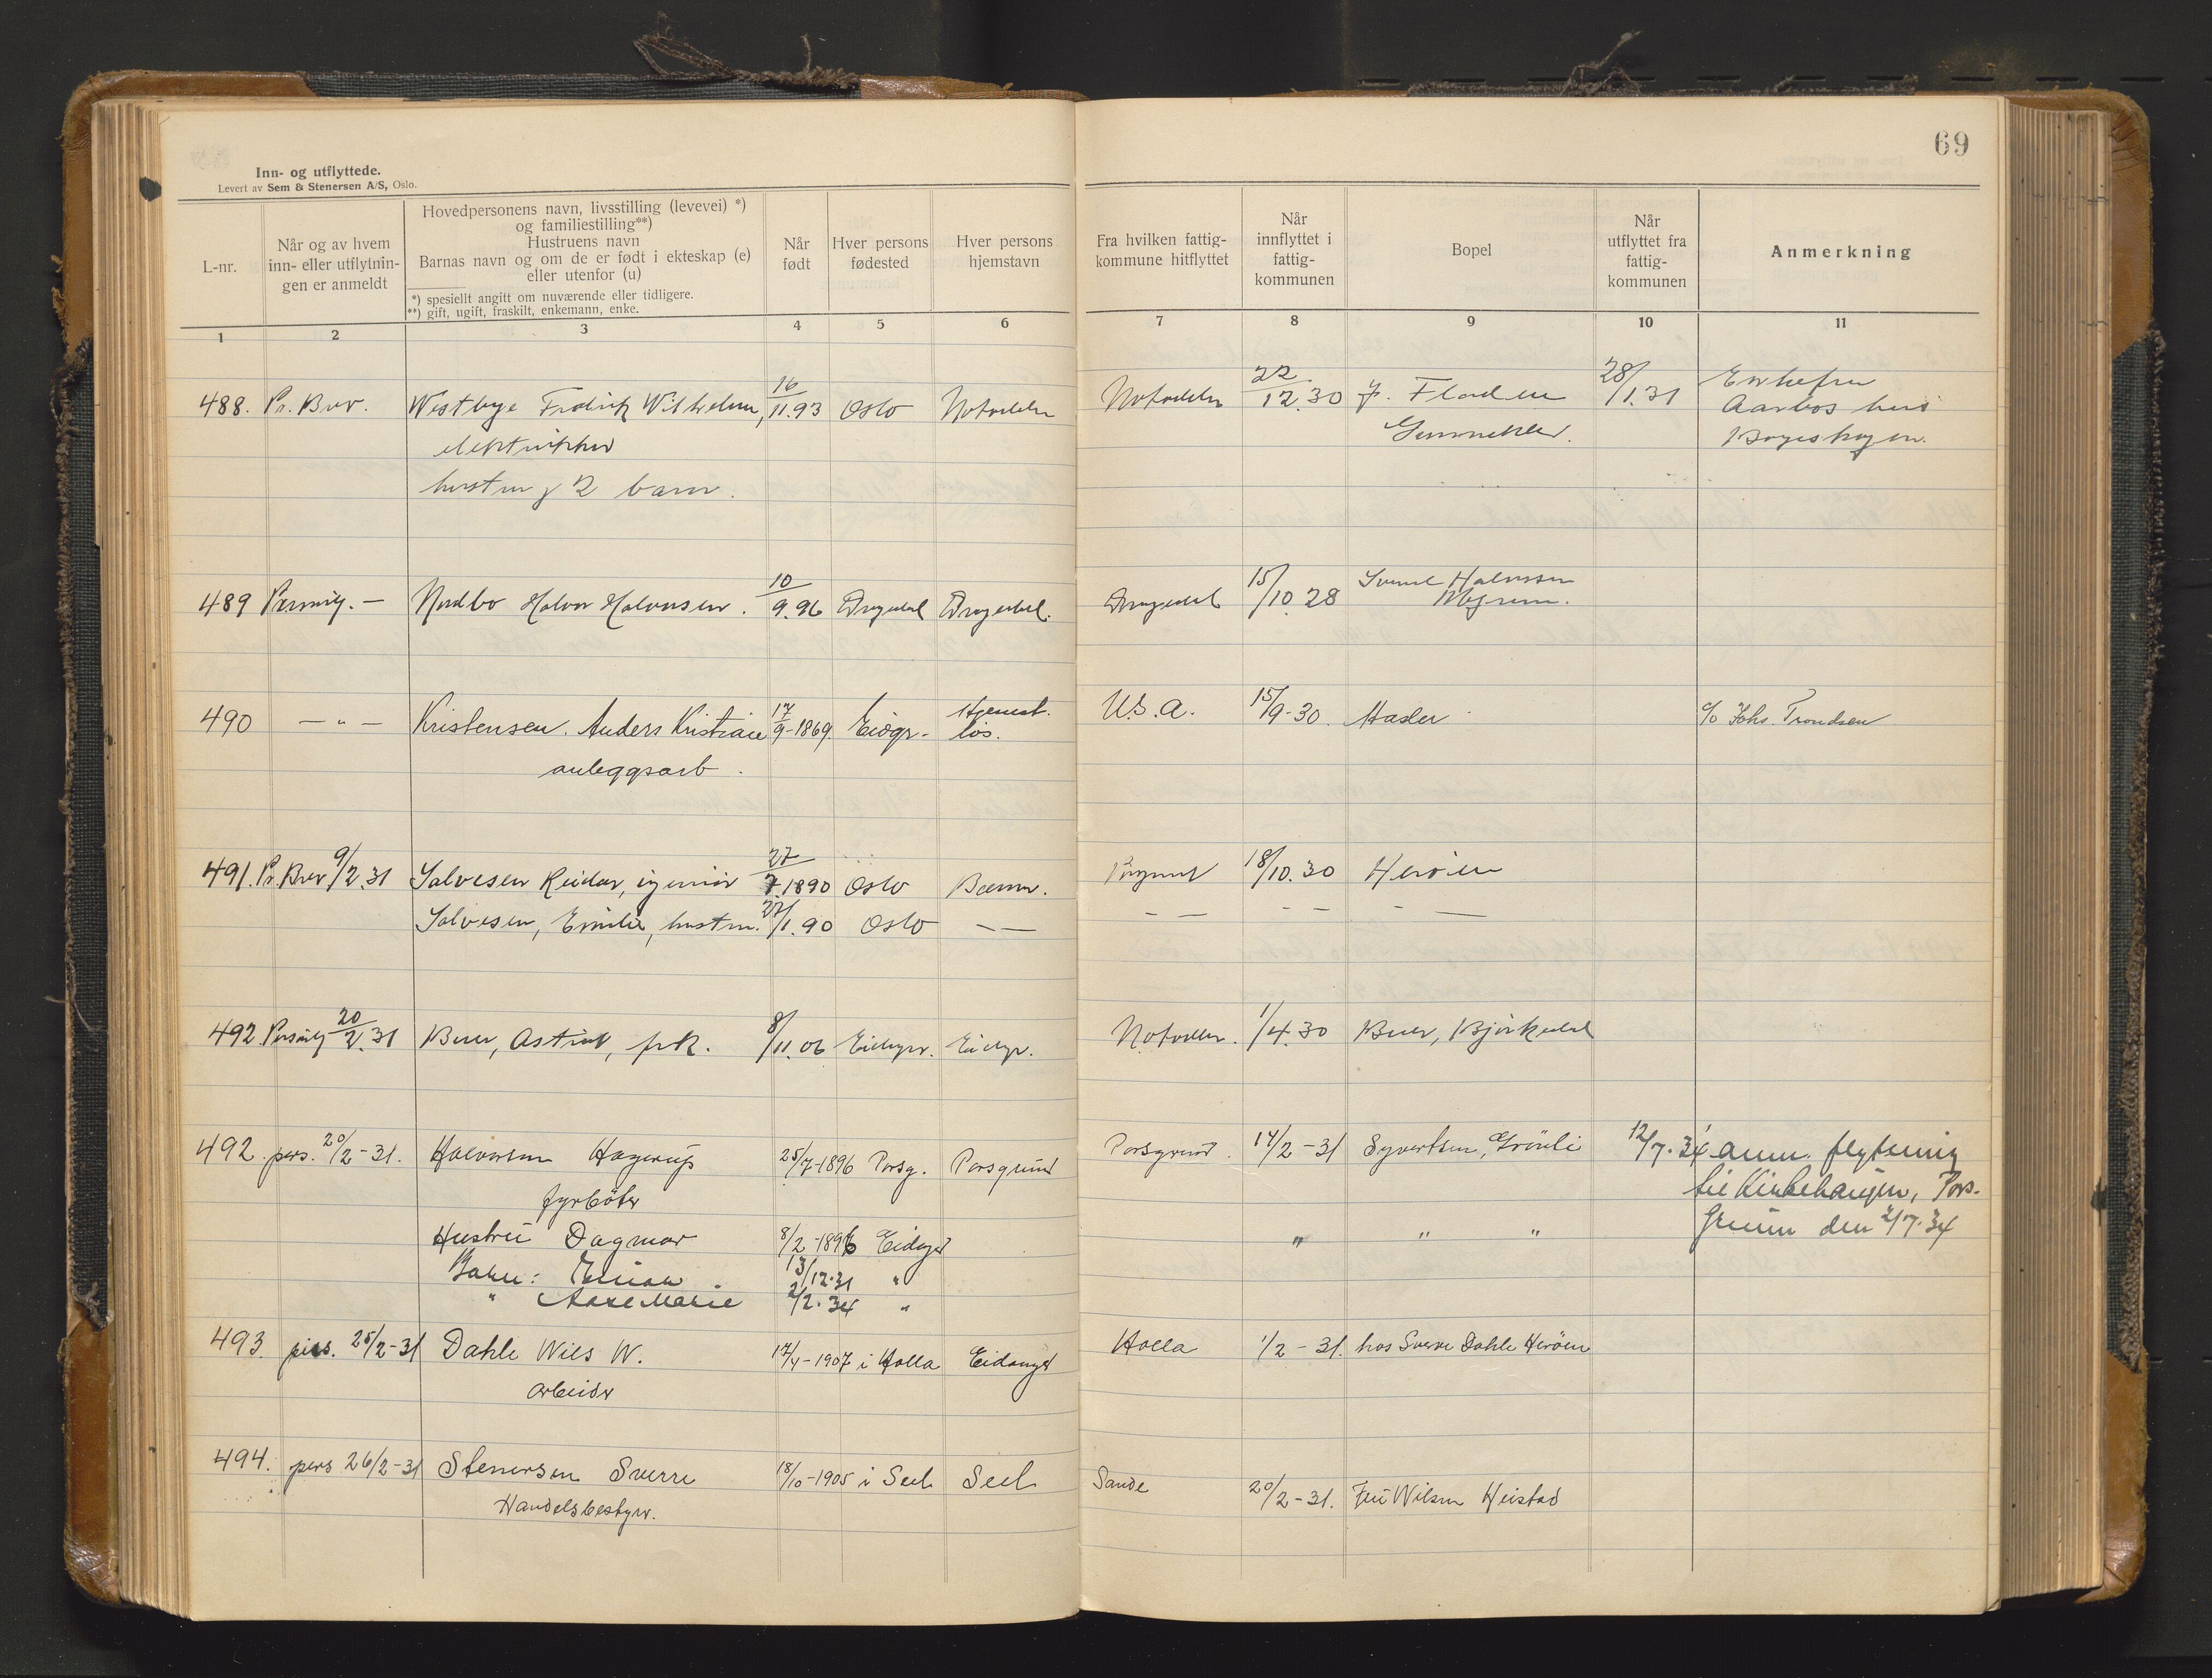 69
Inn- og utflyttede.
Levert av Sem & Stenersen A/S, Oslo.
L-nr.
Når og av hvem
inn- eller utflytnin-
gen er anmeldt
Hovedpersonens navn, livsstilling (levevei) *)
og familiestilling**)
Hustruens navn
Barnas navn og om de er født i ekteskap (e)
eller utenfor (u)
*) spesiellt angitt om nuværende eller tidligere.
**) gift, ugift, fraskilt, enkemann, enke.
Når
født
Hver persons
fødested
Hver persons
hjemstavn
Fra hvilken fattig-
kommune hitflyttet
Når
innflyttet i
fattig-
kommunen
Bopel
Når
utflyttet fra
fattig-
kommunen
Anmerkning
1 2 3 4 5 6 7 8 9 10 11
488. Pr. Brev. Westbye Fredrik Wilhelm, 16/11.93 Oslo Notodden Notodden 22/12.30 28/1.31
elektriker Aarbos hus
hustru & 2 barn.
489 Personlig. — Nordbo Halvor Halvorsen. 10/9.96 Drangedal Drangedal. Drangedal 15/10.28 Halvorsen
490 — " — Kristensen. Anders Kristian 17/9-1869. Eidgr- Hjemst. løs. U.S.A. 15/9-30. Hasler c/o Johs. Trondsen
anleggsarb.
491. Pr. Brev 9/2.31 Salvesen Reidar, ingeniør 27/7.1890 Oslo Bærum. Porsgrund 18/10.30 Herøen
Salvesen, Emilie, hustru. 27/1.90 Oslo — — — — — — — —
492. Personlig 20/2.31 Buer, Astrid, frk. 8/11.06 Eidanger. Eidgr. Notodden. 1/4.30 Buer, Bjørkedal
492. pers. 20/2-31. Halvorsen Hagerup 25/7-1896 Porsg. Porsgrund Porsgrund. 14/2-31 Syvertsen, Grönli 12/7.34 anm. flytning
fyrböter til Kirkehaugen, Pors-
Hustru Dagmar 8/2-1896 Eidangr " " " grunn den 2/7.34
Barn: 13/12.31 "
" Aase Marie 2/2.34 "
493. pers. 25/2-31 Dahle Nils W. 17/4-1907 i Holla Eidanger Holla 1/2-31. hos Sverre Dahle Heröen
arbeider
494. pers 26/2-31 Stenersen Sverre 18/10-1905 i Sell Sell Sande 20/2-31. Fru Nilsen Heistad
Handelsbestyrer.